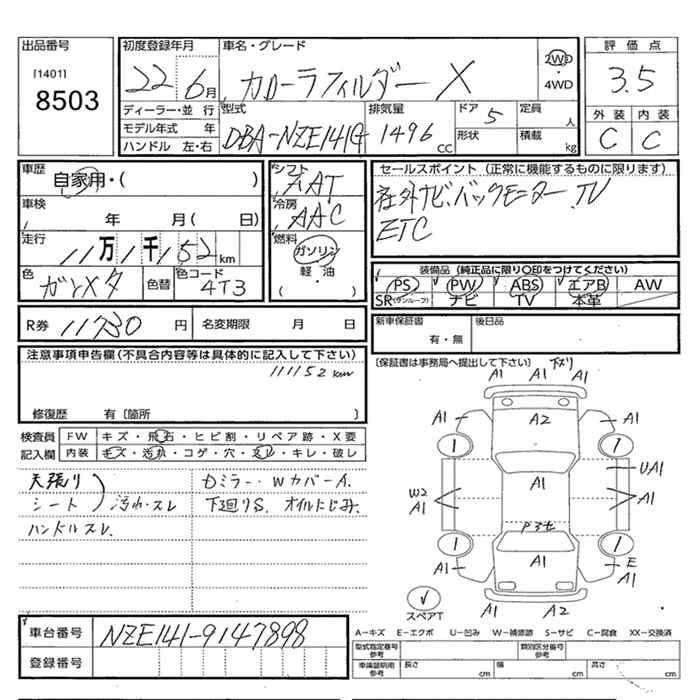 出品番号
[1401]
8503
初度登録年月
22 6月
車名・グレード
カローラフィルダー X
2WD
・
4WD
評価点
3.5
外装 内装
C C
ディーラー・並行
モデル年式 年
ハンドル 左・右
型式
DBA-NZE141G
排気量
1496 CC
ドア 5
形状
定員 人
積載 kg
車歴
自家用・(
車検
年 月( 日)
走行
11万1千152km
色
ガンメタ
色替
色コード
4T3
シフト
AT
冷房
AAC
燃料
ガソリン
軽・油
( ・ )
セールスポイント(正常に機能するものに限ります)
社外ナビ、バックモニター、TV
ETC
装備品(純正品に限り○印をつけてください)
PS PW ABS エアB AW
SR(サンルーフ) ナビ TV 本革
R券 11730 円
名変期限 月 日
新車保証書
有・無
後日品
注意事項申告欄(不具合内容等は具体的に記入して下さい)
111152km
修復歴 有〔箇所 〕
〔保証書は事務局へ提出して下さい〕
検査員 FW キズ・飛石・ヒビ割・リペア跡・X要
記入欄 内装 キズ・汚れ・コゲ・穴・スレ・キレ・破レ
天張り
シート
汚れ・スレ
ハンドルスレ
Dミラー・WカバーA.
下廻りS. オイルにじみ.
A1 A1 A1
A1 A2 A1
UA1
W2
A1
A1
A1
A1
A1 E
A1
A1 A2
スペアT
車台番号 NZE141-9147898
登録番号
A-キズ E-エクボ U-凹み W-補修跡 S-サビ C-腐食 XX-交換済
型式指定番号
参考
類別区分番号
参考
車庫証明用
参考
長さ cm 幅 cm 高さ cm